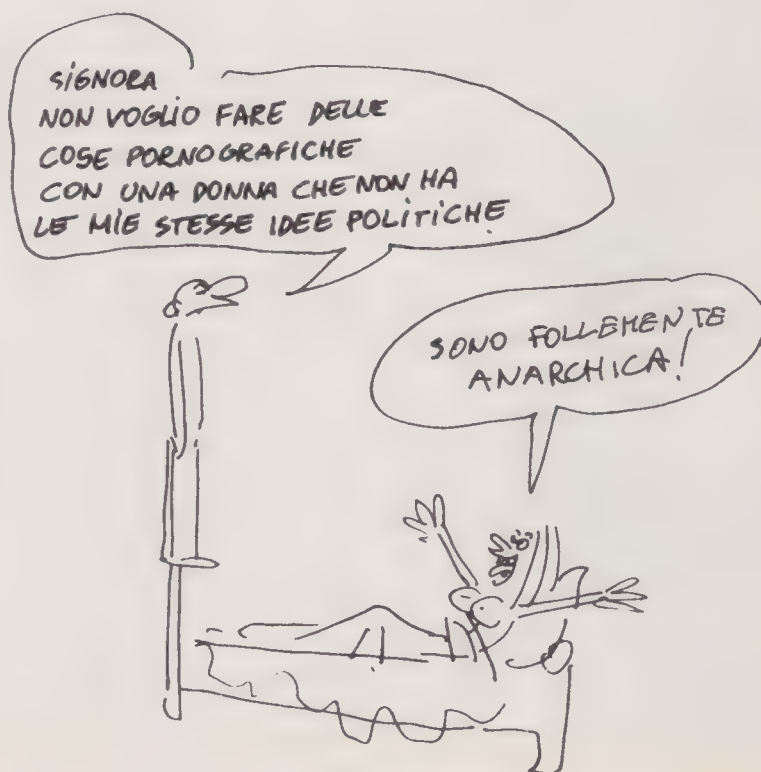 SIGNORA
NON VOGLIO FARE DELLE
COSE PORNOGRAFICHE
CON UNA DONNA CHE NON HA
LE MIE STESSE IDEE POLITICHE
SONO FOLLEMENTE
ANARCHICA!